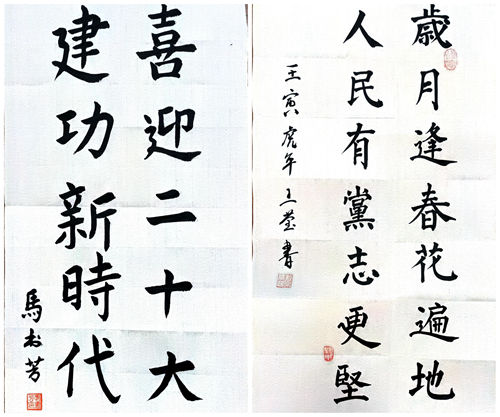 喜迎二十大
建功新時代
馬 芳
歲月逢春花遍地
人民有黨志更堅
壬寅虎年 王莹書